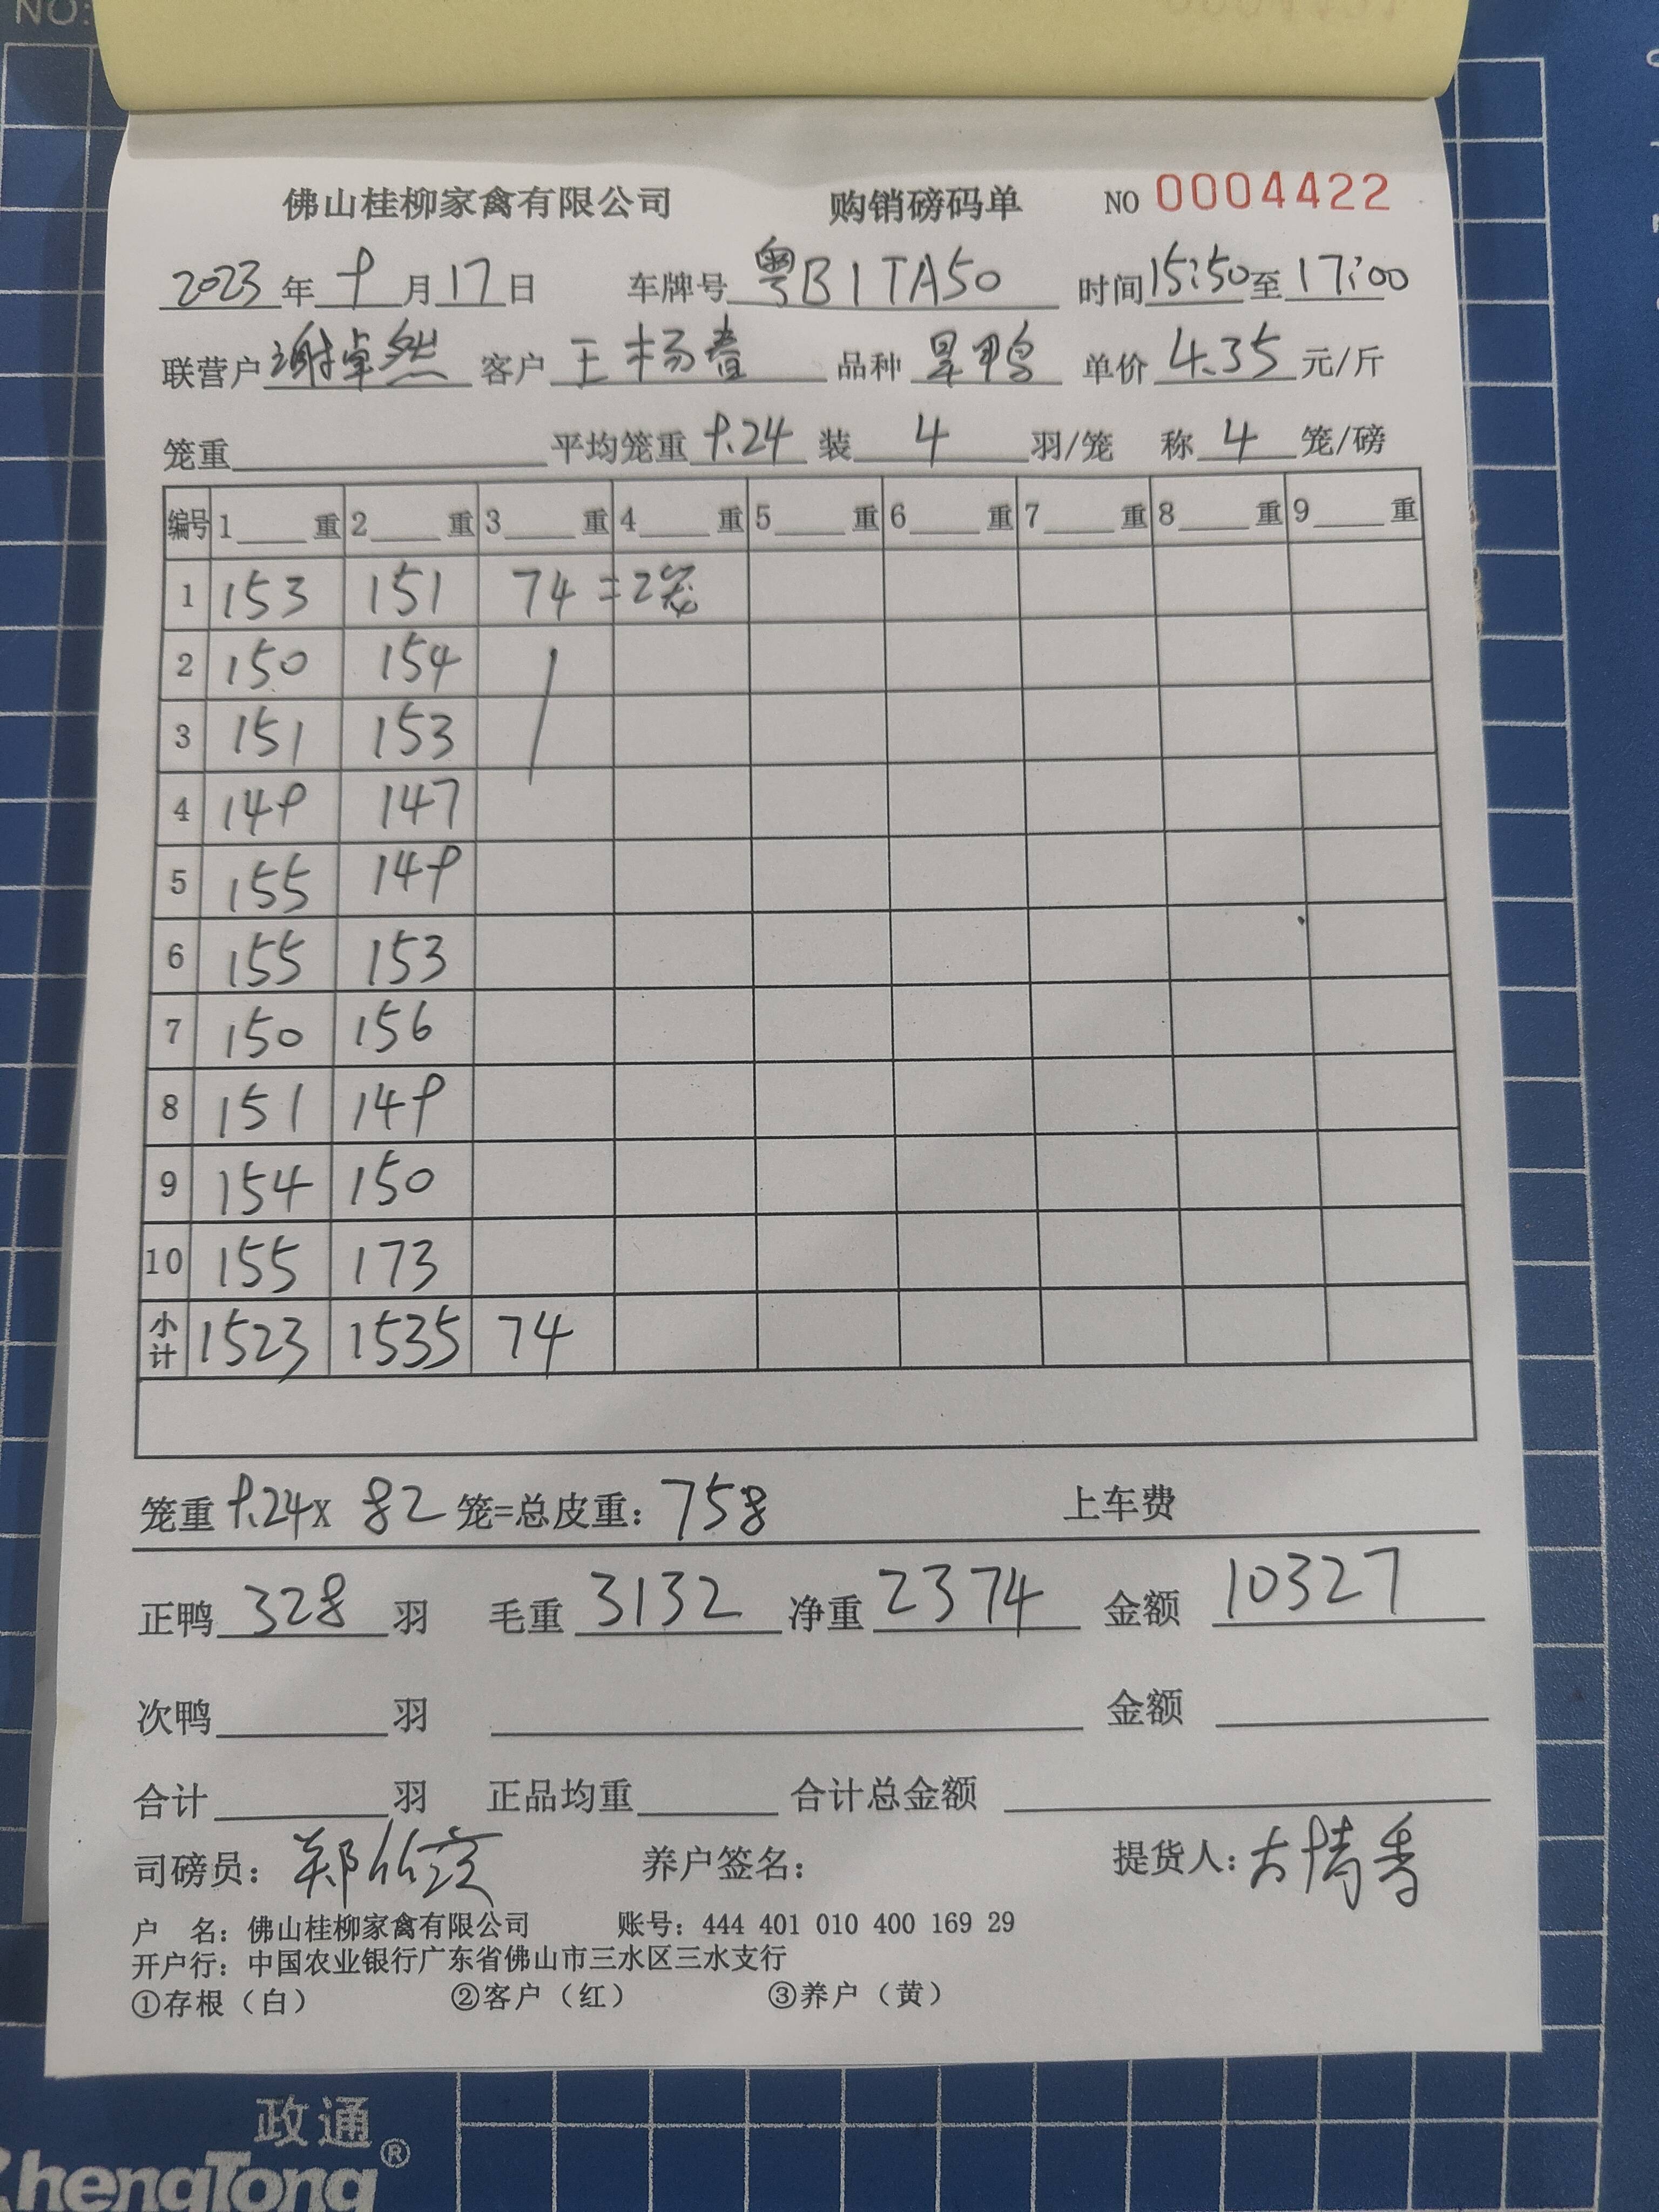 NO:
佛山桂柳家禽有限公司 购销磅码单 NO 0004422
2023年9月17日 车牌号 粤B1TA50 时间15:50至17:00
联营户 谢卓然 客户 王杨春 品种 旱鸭 单价 4.35 元/斤
笼重 平均笼重 9.24 装 4 羽/笼 称 4 笼/磅
编号 1 重 2 重 3 重 4 重 5 重 6 重 7 重 8 重 9 重
1 153 151 74 =2笼
2 150 154
3 151 153
4 149 147
5 155 149
6 155 153
7 150 156
8 151 149
9 154 150
10 155 173
小计 1523 1535 74
笼重 9.24x 82 笼=总皮重: 758 上车费
正鸭 328 羽 毛重 3132 净重 2374 金额 10327
次鸭 羽 金额
合计 羽 正品均重 合计总金额
司磅员: 郑 养户签名: 提货人:
户 名: 佛山桂柳家禽有限公司 账号: 444 401 010 400 169 29
开户行: 中国农业银行广东省佛山市三水区三水支行
①存根(白) ②客户(红) ③养户(黄)
政通
ZhengTong®